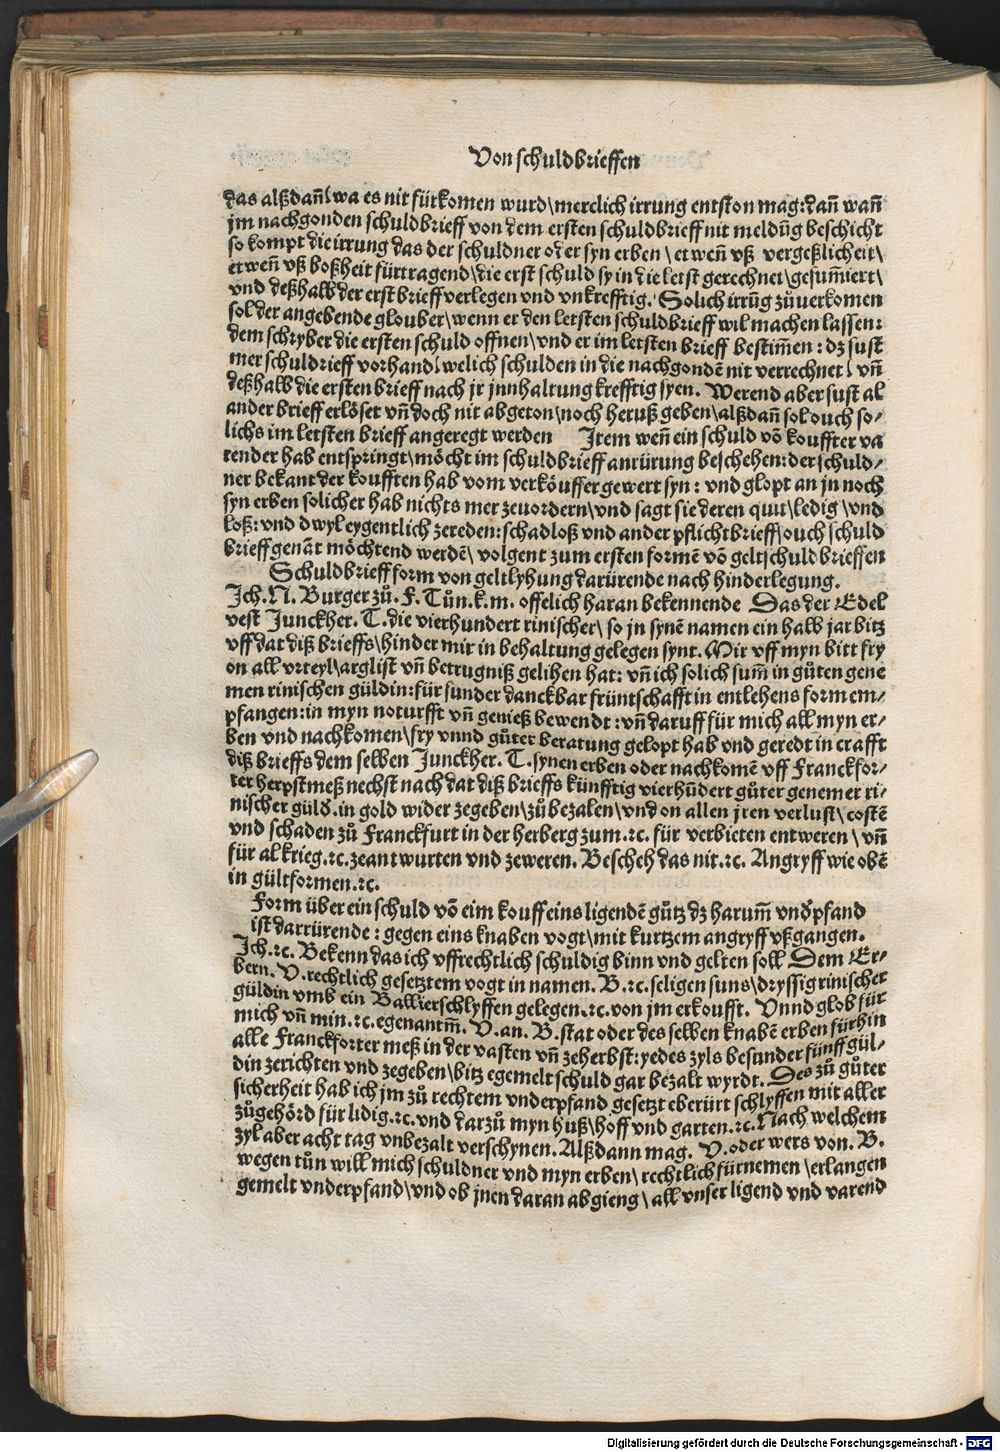 Von schuldbrieffen
das alßdañ\ wa es nit fürkomen wurd\ merclich irrung entston mag: dañ wañ
jm nachgonden schuldbrieff von dem ersten schuldbrieff nit meldũg beschicht
so kompt die irrung das der schuldner oder syn erben \ etweñ vß vergeßlicheit\
etweñ vß boßheit fürtragend\ die erst schuld sy in die letst gerechnet\ gesum̃iert\
vnd deßhalb der erst brieff verlegen vnd vnkrefftig. Solich irrũg zů uerkomen
sol der angebende glouber\ wenn er den letsten schuldbrieff wil machen lassen:
dem schryber die ersten schuld offnen\ vnd er im letsten brieff bestim̃en: dz sust
mer schuldrieff vorhand\ welich schulden in die nachgondẽ nit verrechnet\ vñ
deßhalb die ersten brieff nach jr jnnhaltung krefftig syen. Werend aber sust al
ander brieff erlöset vñ doch nit abgeton\ noch heruß geben\ alßdañ sol ouch so-
lichs im letsten brieff angeregt werden Item weñ ein schuld võ kouffter va
render hab entspringt\ möcht im schuldbrieff anrürung beschehen: der schuld-
ner bekant der koufften hab vom verköuffer gewert syn: vnd glopt an jn noch
syn erben solicher hab nichts mer zeuordern\ vnd sagt sie deren quit\ ledig \vnd
loß: vnd dwyl eygentlich zereden: schadloß vnd ander pflichtbrieff\ ouch schuld
brieff genãt möchtend werdẽ\ volgent zum ersten formẽ võ geltschuldbrieffen
Schuldbrieff form von geltlyhung darürende nach hinderlegung.
Ich. N. Burger zů. F. Tůn. k. m. offelich haran bekennende Das der Edel
vest Junckher. T. die vierhundert rinischer\ so jn synẽ namen ein halb jar bitz
vff dat diß brieffs\ hinder mir in behaltung gelegen synt. Mir vff myn bitt fry
on all vrteyl\ arglist vñ betrugniß gelihen hat: vñ ich solich sum̃ in gůten gene
men rinischen güldin: für sunder danckbar früntschafft in entlehens form em-
pfangen: in myn noturfft vñ genieß bewendt: vñ daruff für mich all myn er-
ben vnd nachkomen\ fry vnnd gůter beratung gelopt hab vnd geredt in crafft
diß brieffs dem selben Junckher. T. synen erben oder nachkomẽ vff Franckfor-
ter herpstmeß nechst nach dat diß brieffs künfftig vierhũdert gůter genemer ri-
nischer güld. in gold wider zegeben\ zů bezalen\ vnd on allen jren verlust\ costẽ
vnd schaden zů Franckfurt in der herberg zum. ⁊c. für verbieten entweren \ vñ
für al krieg. ⁊c. zeantwurten vnd zeweren. Bescheh das nit. ⁊c. Angryff wie obẽ
in gültformen. ⁊c.
Form über ein schuld võ eim kouff eins ligendẽ gůtz dz harum̃ vnd̕pfand
ist darrürende: gegen eins knaben vogt\ mit kurtzem angryff vßgangen.
Ich. ⁊c. Bekenn das ich vffrechtlich schuldig binn vnd gelten soll Dem Er-
bern. V. rechtlich gesetztem vogt in namen. B. ⁊c. seligen suns\ dryssig rinischer
güldin vmb ein Ballierschlyffen gelegen. ⁊c. von jm erkoufft. Vnnd glob für
mich vñ min. ⁊c. egenantm̃. V. an. B. stat oder des selben knabẽ erben fürhin
alle Franckforter meß in der vasten vñ zeherbst: yedes zyls besunder fünff gül-
din zerichten vnd zegeben\ bitz egemelt schuld gar bezalt wyrdt. Des zů gůter
sicherheit hab ich jm zů rechtem vnderpfand gesetzt eberürt schlyffen mit aller
zůgehörd für lidig. ⁊c. vnd darzů myn huß\ hoff vnd garten. ⁊c. Nach welchem
zyl aber acht tag vnbezalt verschynen. Alßdann mag. V. oder wers von. B.
wegen tůn will mich schuldner vnd myn erben\ rechtlich fürnemen \erlangen
gemelt vnderpfand\ vnd ob jnen daran abgieng \ all vnser ligend vnd varend
Digitalisierung gefördert durch die Deutsche Forschungsgemeinschaft - DFG